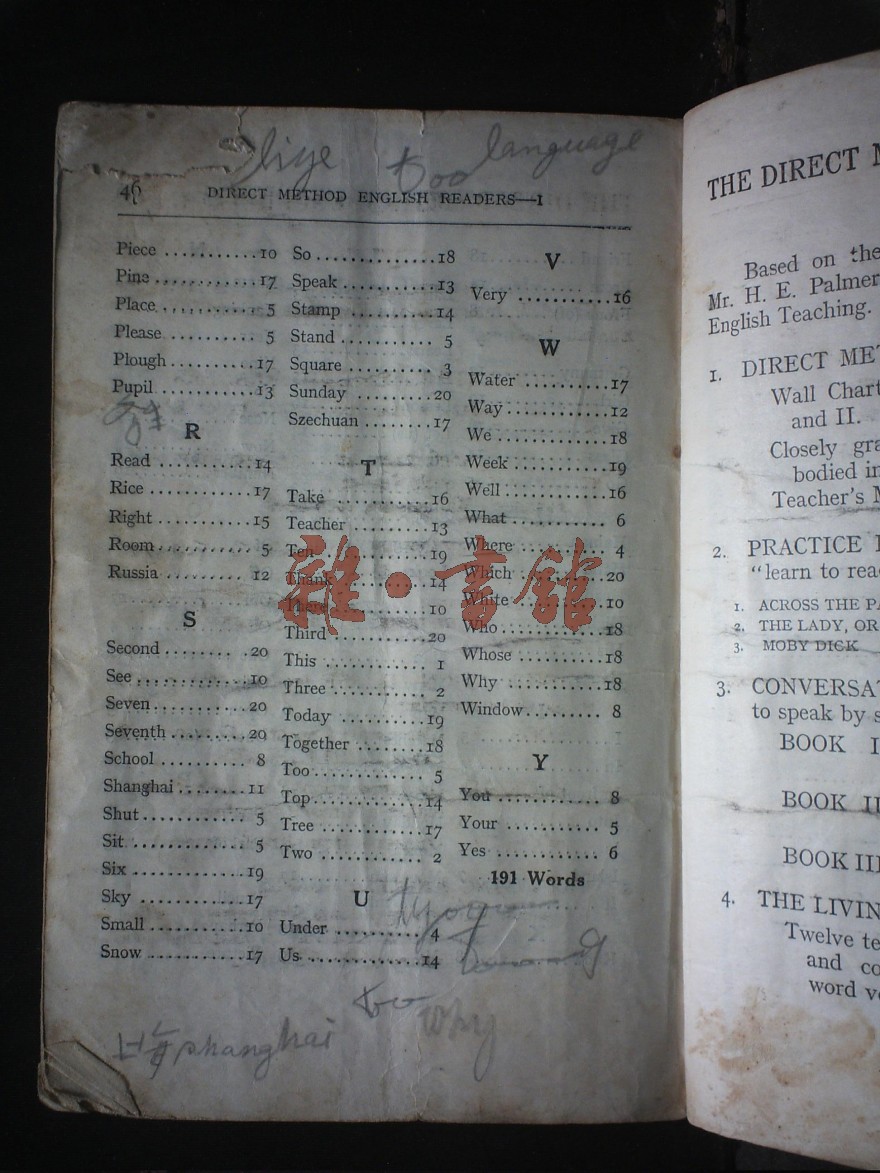 liye too language
46 DIRECT METHOD ENGLISH READERS—I
Piece ........... 10
Pine ............ 17
Place ........... 5
Please .......... 5
Plough .......... 17
Pupil ........... 13
R
Read ........... 14
Rice ........... 17
Right .......... 15
Room ........... 5
Russia ......... 12
S
Second ........ 20
See ........... 10
Seven .......... 20
Seventh ........ 20
School ......... 8
Shanghai ....... 11
Shut ........... 5
Sit ............ 5
Six ............ 19
Sky ............ 17
Small .......... 10
Snow ........... 17
So ............. 18
Speak .......... 13
Stamp .......... 14
Stand .......... 5
Square ......... 3
Sunday ......... 20
Szechuan ....... 17
T
Take ........... 16
Teacher ........ 13
Ten ............ 19
Thank .......... 14
There .......... 10
Third .......... 20
This ........... 1
Three .......... 2
Today .......... 19
Together ....... 18
Too ............ 5
Top ............ 14
Tree ........... 17
Two ............ 2
U
Under .......... 4
Us ............. 14
V
Very ........... 16
W
Water .......... 17
Way ............ 12
We ............. 18
Week ........... 19
Well ........... 16
What ........... 6
Where .......... 4
Which .......... 20
White .......... 10
Who ............ 18
Whose .......... 18
Why ............ 18
Window ......... 8
Y
You ............ 8
Your ........... 5
Yes ............ 6
191 Words
too
Why
shanghai
雜·書館
THE DIRECT
Based on the
Mr. H. E. Palmer
English Teaching.
1. DIRECT
Wall Chart
and II.
Closely
Teacher's
2. PRACTICE
"learn to
1. ACROSS THE
2. THE LADY, OR
3. MOBY DICK
3.
to speak by
BOOK I
BOOK II
BOOK III
4. THE
Twelve
and
word